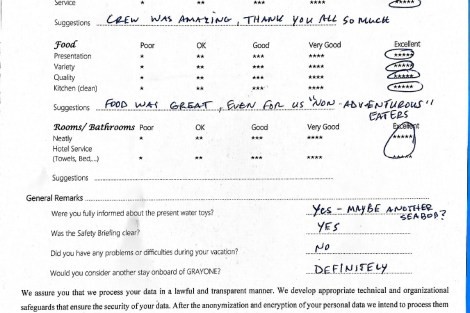 Service * ** *** **** *****
Suggestions CREW WAS AMAZING, THANK YOU ALL SO MUCH
Food Poor OK Good Very Good Excellent
Presentation * ** *** **** *****
Variety * ** *** **** *****
Quality * ** *** **** *****
Kitchen (clean) * ** *** **** *****
Suggestions FOOD WAS GREAT, EVEN FOR US "NON-ADVENTUROUS"
EATERS
Rooms/ Bathrooms Poor OK Good Very Good Excellent
Neatly * ** *** **** *****
Hotel Service
(Towels, Bed,...) * ** *** ****
Suggestions
General Remarks
Were you fully informed about the present water toys? Yes - MAYBE ANOTHER
SEABOB?
Was the Safety Briefing clear? YES
Did you have any problems or difficulties during your vacation? NO
Would you consider another stay onboard of GRAYONE? DEFINITELY
We assure you that we process your data in a lawful and transparent manner. We develop appropriate technical and organizational
safeguards that ensure the security of your data. After the anonymization and encryption of your personal data we intend to process them